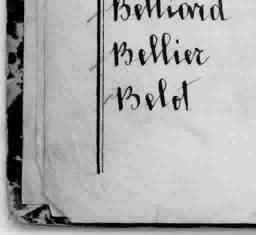 Belliard
Bellier
Belot